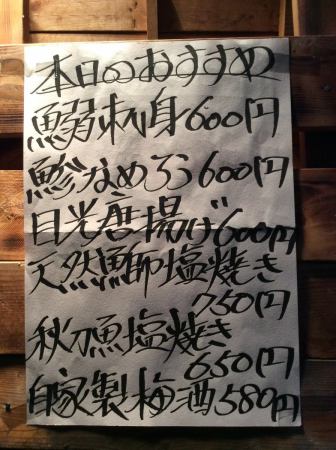 本日のおすすめ
鰯刺身600円
鯵なめろう600円
目光唐揚げ600円
天然鰤塩焼き
750円
秋刀魚塩焼き
650円
自家製梅酒580円